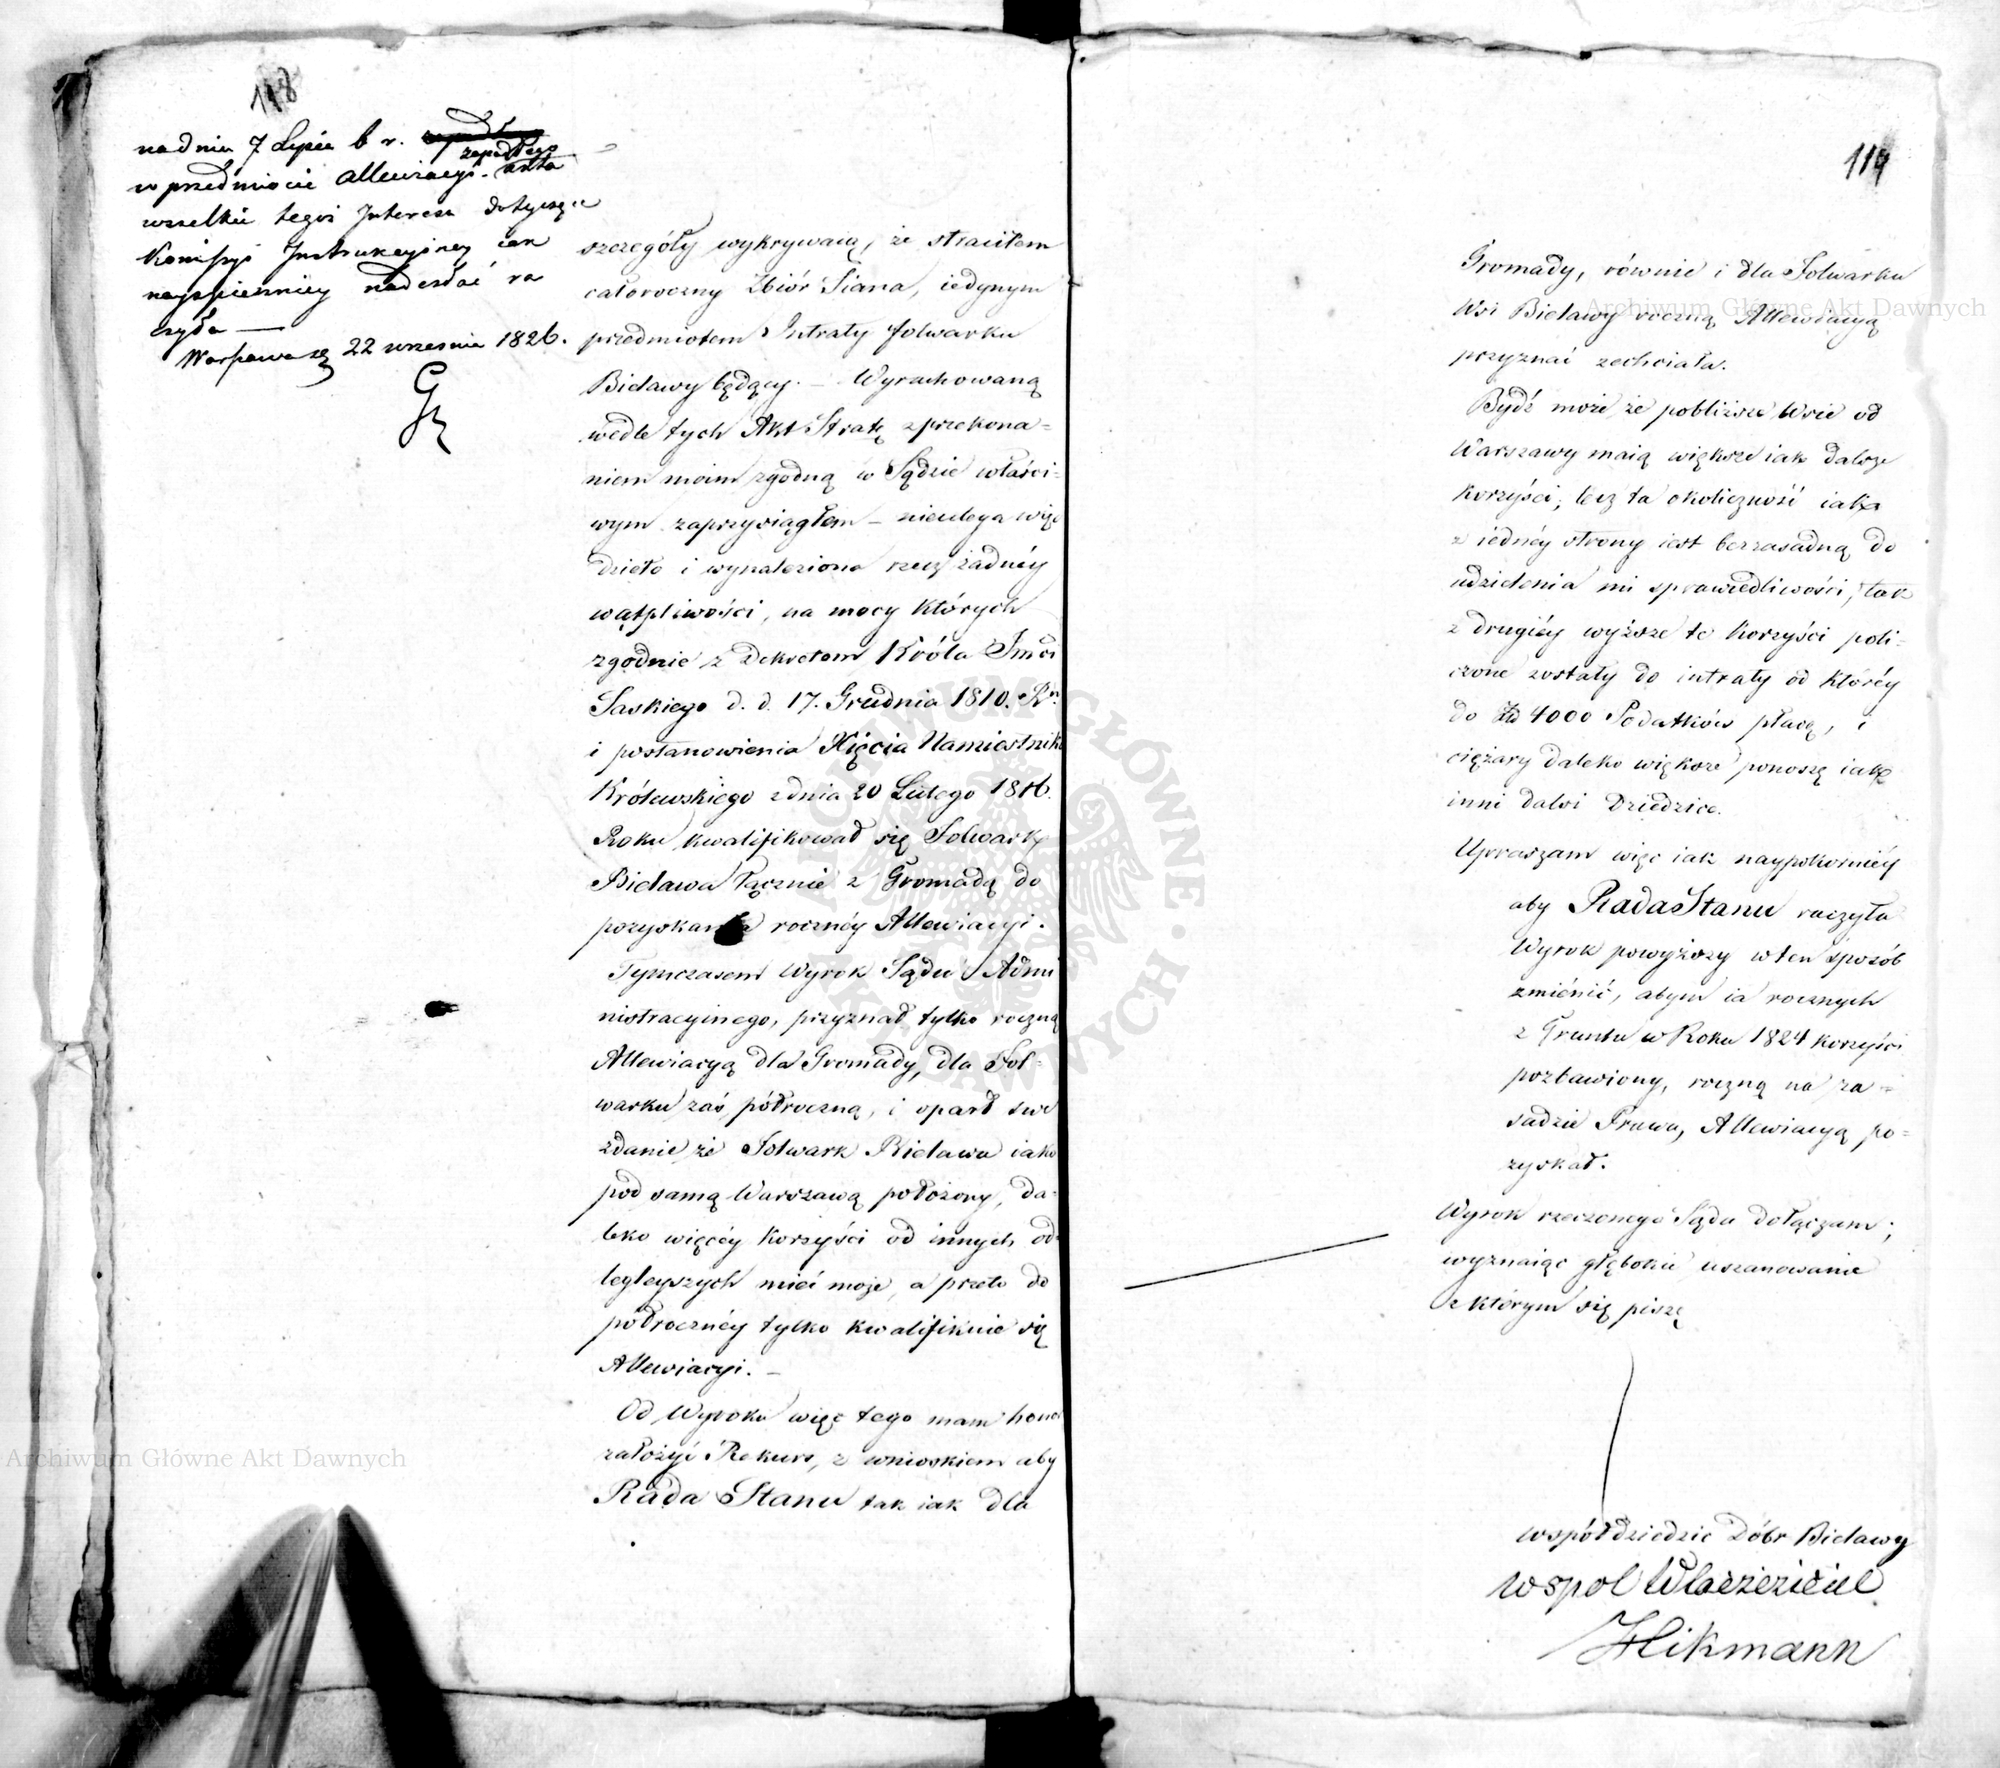 118
na dniu 7 Lipca b r.
zapadłego
w przedmiocie Allewiacyi akta
wszelkie tegoż Interesu dotyczące
Kommissyi Instrukcyiney iak
nayspieszniey nadesłać ra
czyła —
Warszawa 22 września 1826.
szczegóły wykrywaią, że straciłem
całoroczny Zbiór Siana, iedynym
przedmiotem Intraty folwarku
Bielawy będący. — Wyrachowaną
wedle tych Akt Stratę z przekona=
niem moim zgodną w Sądzie właści=
wym zaprzysiągłem — nieulega więc
dzieło i wynaleziona rzecz żadnéy
wątpliwości, na mocy których
zgodnie z Dekretem Króla Imci
Saskiego d. d. 17. Grudnia 1810. Rn
i postanowienia Xięcia Namiestnika
Królewskiego z dnia 20 Lutego 1816.
Roku kwalifikował się Folwark
Bielawa łącznie z Gromadą do
pozyskania rocznéy Allewiacyi.
Tymczasem Wyrok Sądu Admi
nistracyinego, przyznał tylko roczną
Allewiacyą dla Gromady, dla Fol=
warku zaś półroczną, i oparł swe
zdanie że Folwark Bielawa iako
pod samą Warszawą położony, da=
leko więcéy korzyści od innych od=
legleyszych mieć może, a przeto do
półrocznéy tylko kwalifikuie się
Allewiacyi. —
Od Wyroku więc tego mam honor
założyć Rekurs, z wnioskiem aby
Rada Stanu tak iak dla
119
Gromady, równie i dla Folwarku
Wsi Bielawy roczną Allewiacyą
przyznać zechciała.
Bydź może że pobliższe Wsie od
Warszawy maią większe iak dalsze
korzyści, lecz ta okoliczność iak
z iednéy strony iest bezzasadną do
udzielenia mi sprawiedliwości, tak
z drugiéy wyższe te korzyści poli=
czone zostały do intraty od któréy
do Zł 4000 Podatków płacę, i
ciężary daleko większe ponoszę iak
inni dalsi Dziedzice.
Upraszam więc iak naypokorniéy
aby Rada Stanu raczyła
Wyrok powyższy w ten sposób
zmiénić, abym ia rocznych
z Gruntu w Roku 1824 korzyści
pozbawiony, roczną na za=
sadzie Prawa, Allewiacyą po=
zyskał.
Wyrok rzeczonego Sądu dołączam;
wyznaiąc głębokie uszanowanie
z którym się piszę
współdziedzic Dóbr Bielawy
wspol Wlasciciel
Hikmann
Archiwum Główne Akt Dawnych
Archiwum Główne Akt Dawnych
ARCHIWUM GŁÓWNE AKT DAWNYCH